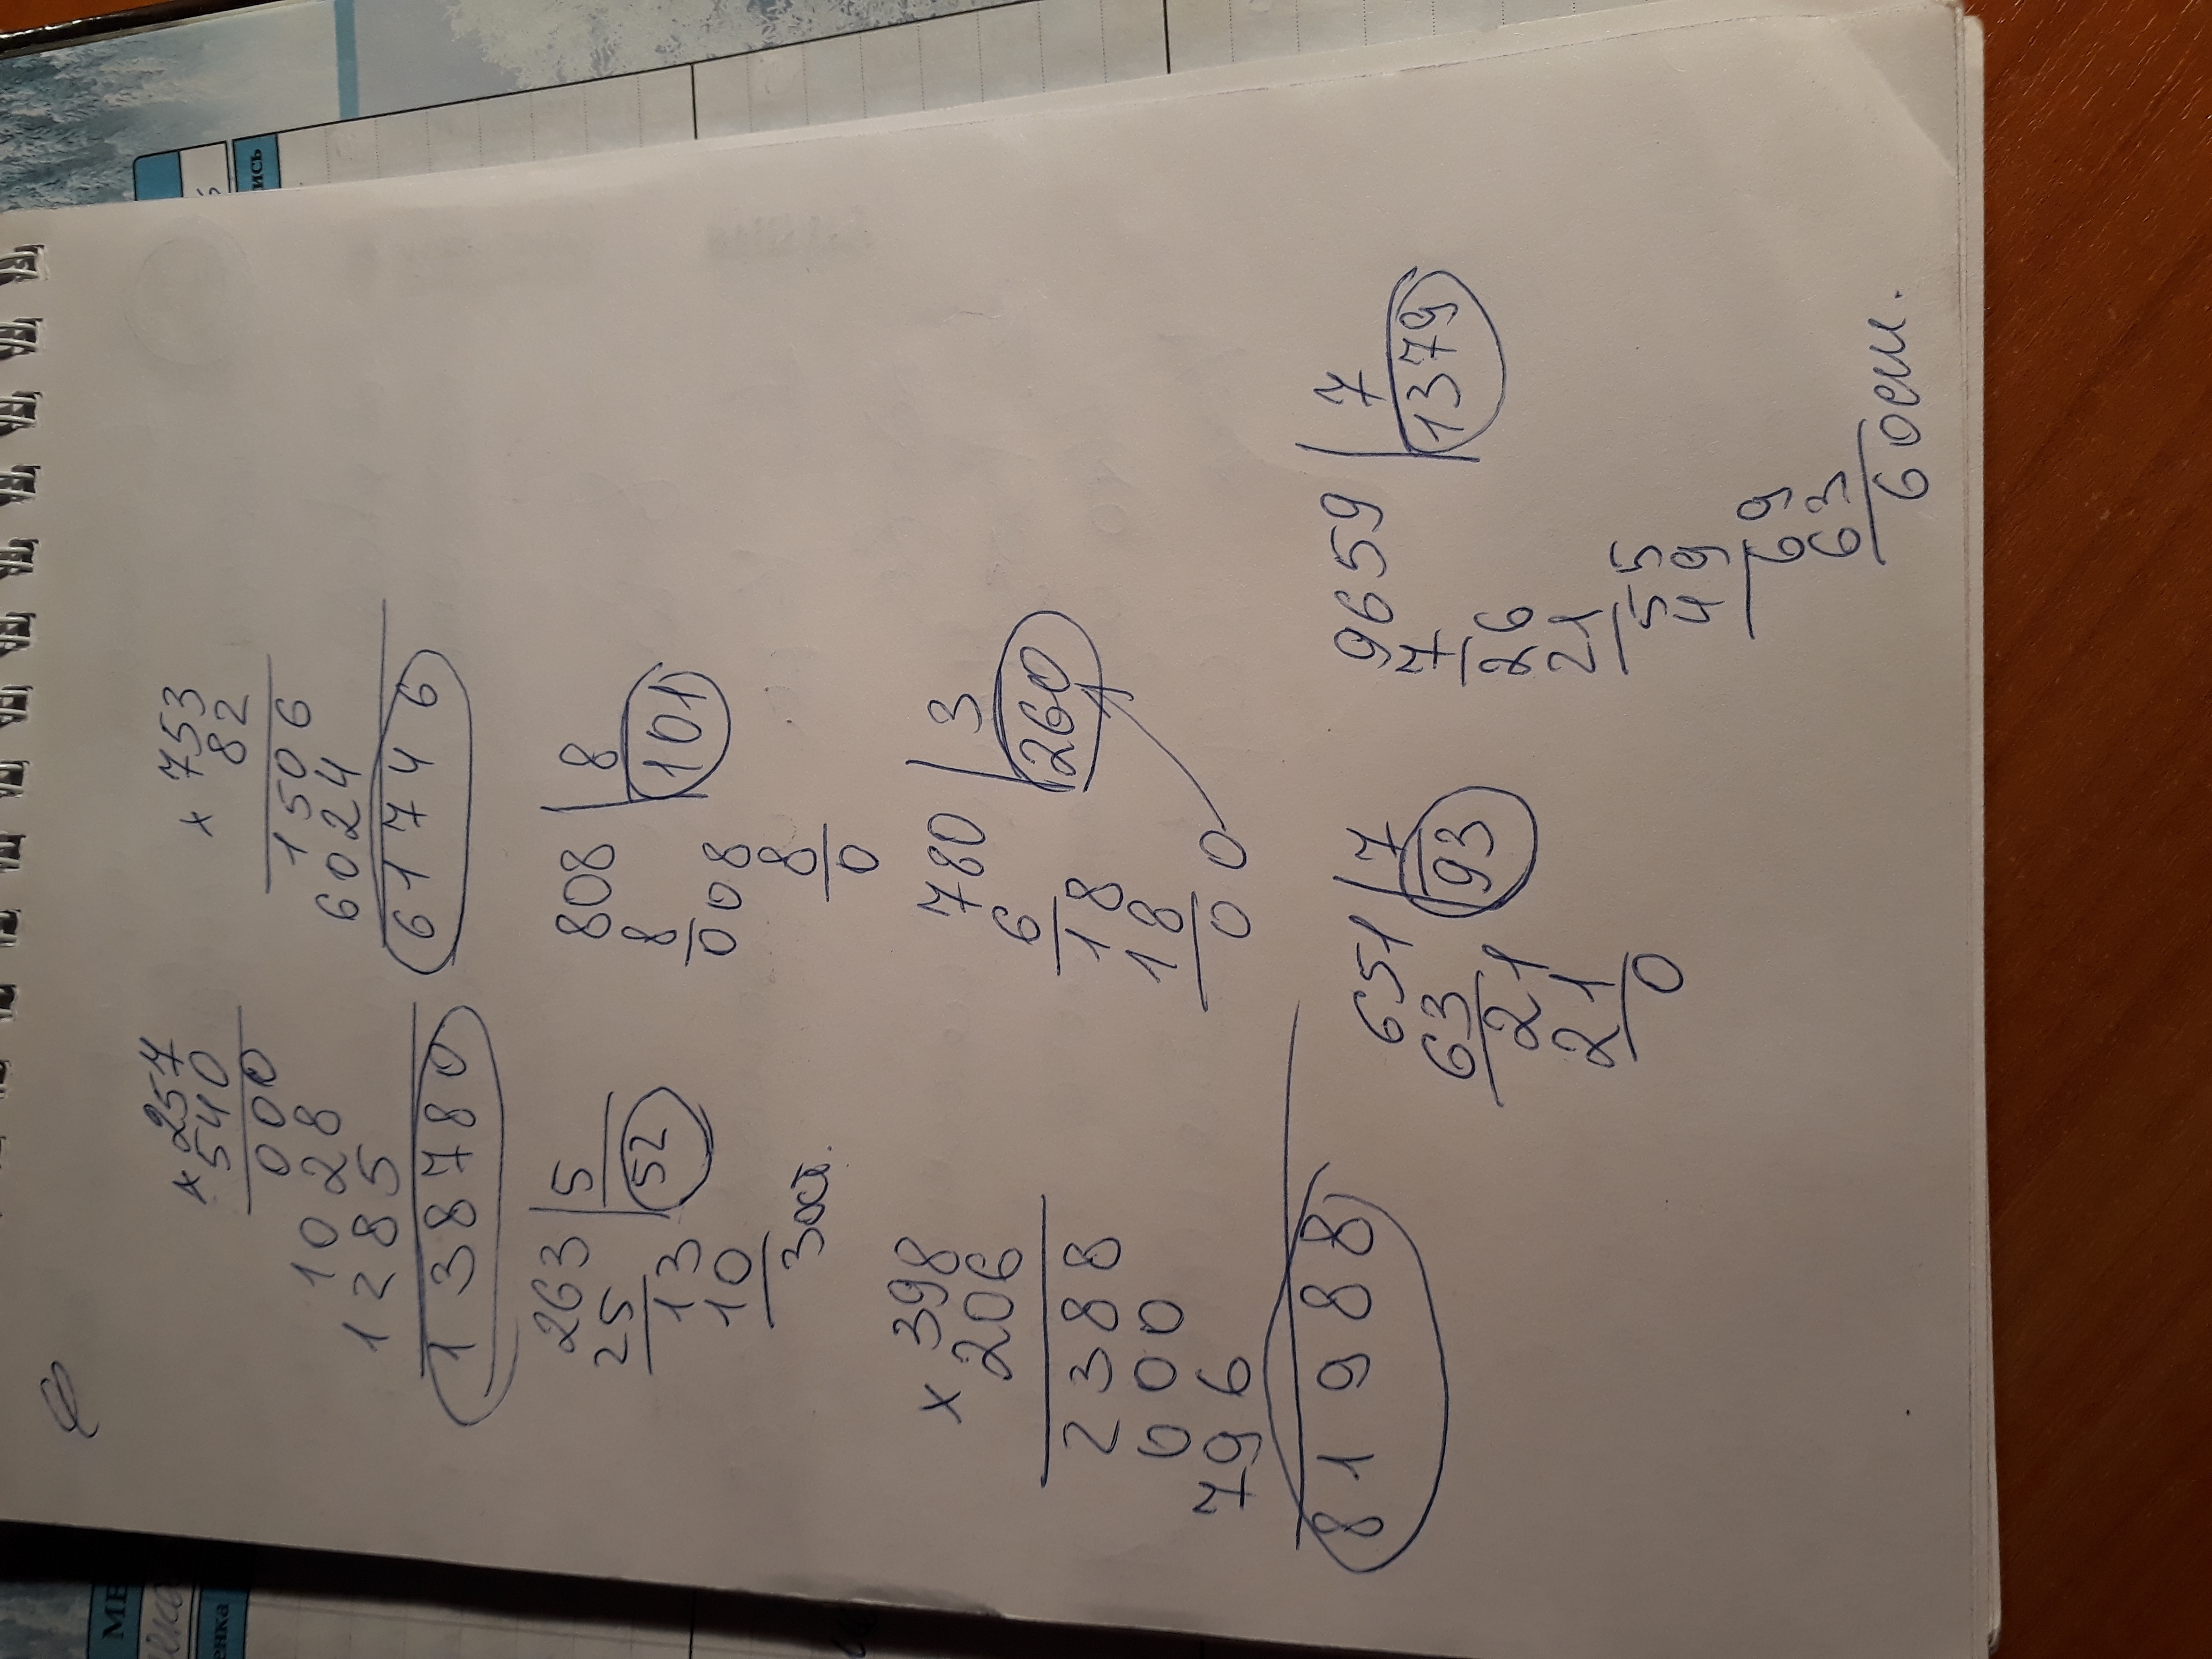 × 257
540
000
1028
1285
138780
× 753
82
1506
6024
61746
263 | 5
25 52
13
10
3 ост.
808 | 8
8 101
008
8
0
× 398
206
2388
000
796
81988
780 | 3
6 260
18
18
0 0
651 | 7
63 93
21
21
0
9659 | 7
7 1379
26
21
55
49
69
63
6 ост.
ись
МЕ
енка